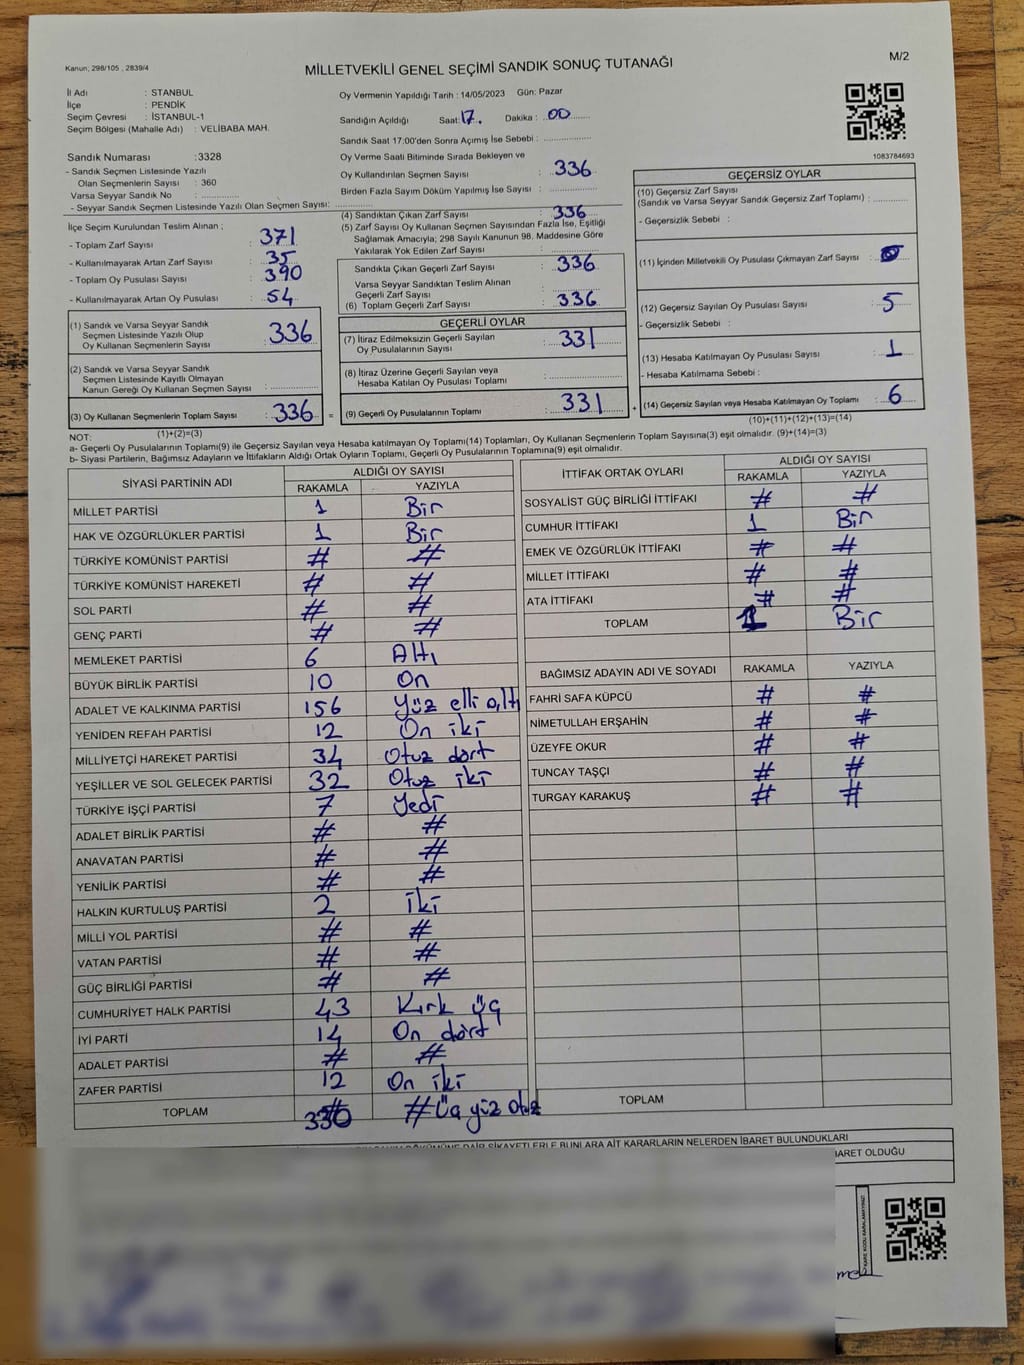 Kanun; 298/105 , 2839/4
MİLLETVEKİLİ GENEL SEÇİMİ SANDIK SONUÇ TUTANAĞI
M/2
İl Adı : STANBUL
İlçe : PENDİK
Seçim Çevresi : İSTANBUL-1
Seçim Bölgesi (Mahalle Adı) : VELİBABA MAH.
Sandık Numarası :3328
- Sandık Seçmen Listesinde Yazılı
Olan Seçmenlerin Sayısı : 360
Varsa Seyyar Sandık No :
- Seyyar Sandık Seçmen Listesinde Yazılı Olan Seçmen Sayısı:
Oy Vermenin Yapıldığı Tarih : 14/05/2023 Gün: Pazar
Sandığın Açıldığı Saat: 17. Dakika : 00
Sandık Saat 17:00'den Sonra Açımış İse Sebebi :
Oy Verme Saati Bitiminde Sırada Bekleyen ve
Oy Kullandırılan Seçmen Sayısı : 336
Birden Fazla Sayım Döküm Yapılmış İse Sayısı :
1083784693
İlçe Seçim Kurulundan Teslim Alınan ;
- Toplam Zarf Sayısı : 371
- Kullanılmayarak Artan Zarf Sayısı : 35
- Toplam Oy Pusulası Sayısı : 390
- Kullanılmayarak Artan Oy Pusulası : 54
(1) Sandık ve Varsa Seyyar Sandık
Seçmen Listesinde Yazılı Olup
Oy Kullanan Seçmenlerin Sayısı : 336
(2) Sandık ve Varsa Seyyar Sandık
Seçmen Listesinde Kayıtlı Olmayan
Kanun Gereği Oy Kullanan Seçmen Sayısı :
(3) Oy Kullanan Seçmenlerin Toplam Sayısı : 336 =
(1)+(2)=(3)
(4) Sandıktan Çıkan Zarf Sayısı : 336
(5) Zarf Sayısı Oy Kullanan Seçmen Sayısından Fazla İse, Eşitliği
Sağlamak Amacıyla; 298 Sayılı Kanunun 98. Maddesine Göre
Yakılarak Yok Edilen Zarf Sayısı :
Sandıkta Çıkan Geçerli Zarf Sayısı : 336
Varsa Seyyar Sandıktan Teslim Alınan
Geçerli Zarf Sayısı :
(6) Toplam Geçerli Zarf Sayısı : 336
GEÇERLİ OYLAR
(7) İtiraz Edilmeksizin Geçerli Sayılan
Oy Pusulalarının Sayısı : 331
(8) İtiraz Üzerine Geçerli Sayılan veya
Hesaba Katılan Oy Pusulası Toplamı :
(9) Geçerli Oy Pusulalarının Toplamı : 331 +
GEÇERSİZ OYLAR
(10) Geçersiz Zarf Sayısı
(Sandık ve Varsa Seyyar Sandık Geçersiz Zarf Toplamı) :
- Geçersizlik Sebebi :
(11) İçinden Milletvekili Oy Pusulası Çıkmayan Zarf Sayısı :
(12) Geçersiz Sayılan Oy Pusulası Sayısı : 5
- Geçersizlik Sebebi :
(13) Hesaba Katılmayan Oy Pusulası Sayısı : 1
- Hesaba Katılmama Sebebi :
(14) Geçersiz Sayılan veya Hesaba Katılmayan Oy Toplamı : 6
(10)+(11)+(12)+(13)=(14)
NOT:
a- Geçerli Oy Pusulalarının Toplamı(9) ile Geçersiz Sayılan veya Hesaba katılmayan Oy Toplamı(14) Toplamları, Oy Kullanan Seçmenlerin Toplam Sayısına(3) eşit olmalıdır. (9)+(14)=(3)
b- Siyasi Partilerin, Bağımsız Adayların ve İttifakların Aldığı Ortak Oyların Toplamı, Geçerli Oy Pusulalarının Toplamına(9) eşit olmalıdır.
SİYASİ PARTİNİN ADI ALDIĞI OY SAYISI
RAKAMLA YAZIYLA
MİLLET PARTİSİ 1 Bir
HAK VE ÖZGÜRLÜKLER PARTİSİ 1 Bir
TÜRKİYE KOMÜNİST PARTİSİ # #
TÜRKİYE KOMÜNİST HAREKETİ # #
SOL PARTİ # #
GENÇ PARTİ # #
MEMLEKET PARTİSİ 6 Altı
BÜYÜK BİRLİK PARTİSİ 10 On
ADALET VE KALKINMA PARTİSİ 156 Yüz elli altı
YENİDEN REFAH PARTİSİ 12 On iki
MİLLİYETÇİ HAREKET PARTİSİ 34 Otuz dört
YEŞİLLER VE SOL GELECEK PARTİSİ 32 Otuz iki
TÜRKİYE İŞÇİ PARTİSİ 7 Yedi
ADALET BİRLİK PARTİSİ # #
ANAVATAN PARTİSİ # #
YENİLİK PARTİSİ # #
HALKIN KURTULUŞ PARTİSİ 2 İki
MİLLİ YOL PARTİSİ # #
VATAN PARTİSİ # #
GÜÇ BİRLİĞİ PARTİSİ # #
CUMHURİYET HALK PARTİSİ 43 Kırk üç
İYİ PARTİ 14 On dört
ADALET PARTİSİ # #
ZAFER PARTİSİ 12 On iki
TOPLAM 330 # Üç yüz otuz
İTTİFAK ORTAK OYLARI ALDIĞI OY SAYISI
RAKAMLA YAZIYLA
SOSYALİST GÜÇ BİRLİĞİ İTTİFAKI # #
CUMHUR İTTİFAKI 1 Bir
EMEK VE ÖZGÜRLÜK İTTİFAKI # #
MİLLET İTTİFAKI # #
ATA İTTİFAKI # #
TOPLAM 1 Bir
BAĞIMSIZ ADAYIN ADI VE SOYADI RAKAMLA YAZIYLA
FAHRİ SAFA KÜPCÜ # #
NİMETULLAH ERŞAHİN # #
ÜZEYFE OKUR # #
TUNCAY TAŞÇI # #
TURGAY KARAKUŞ # #
TOPLAM
DÖKÜMÜNE DAİR ŞİKAYETLERLE BUNLARA AİT KARARLARIN NELERDEN İBARET BULUNDUKLARI
BARET OLDUĞU